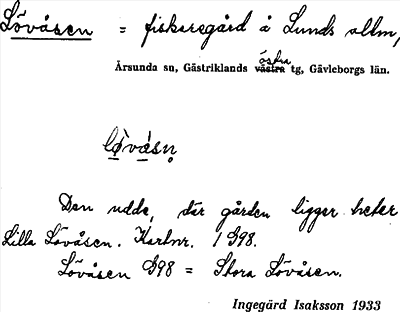 Lövåsen = fiskaregård å Lunds allm,
östra
Årsunda sn, Gästriklands västra tg, Gävleborgs län.
lø̀vá̀sn̥
Den udde, där gården ligger heter
Lilla Lövåsen. Kartnr. 1 G98.
Lövåsen G98 = Stora Lövåsen.
Ingegärd Isaksson 1933